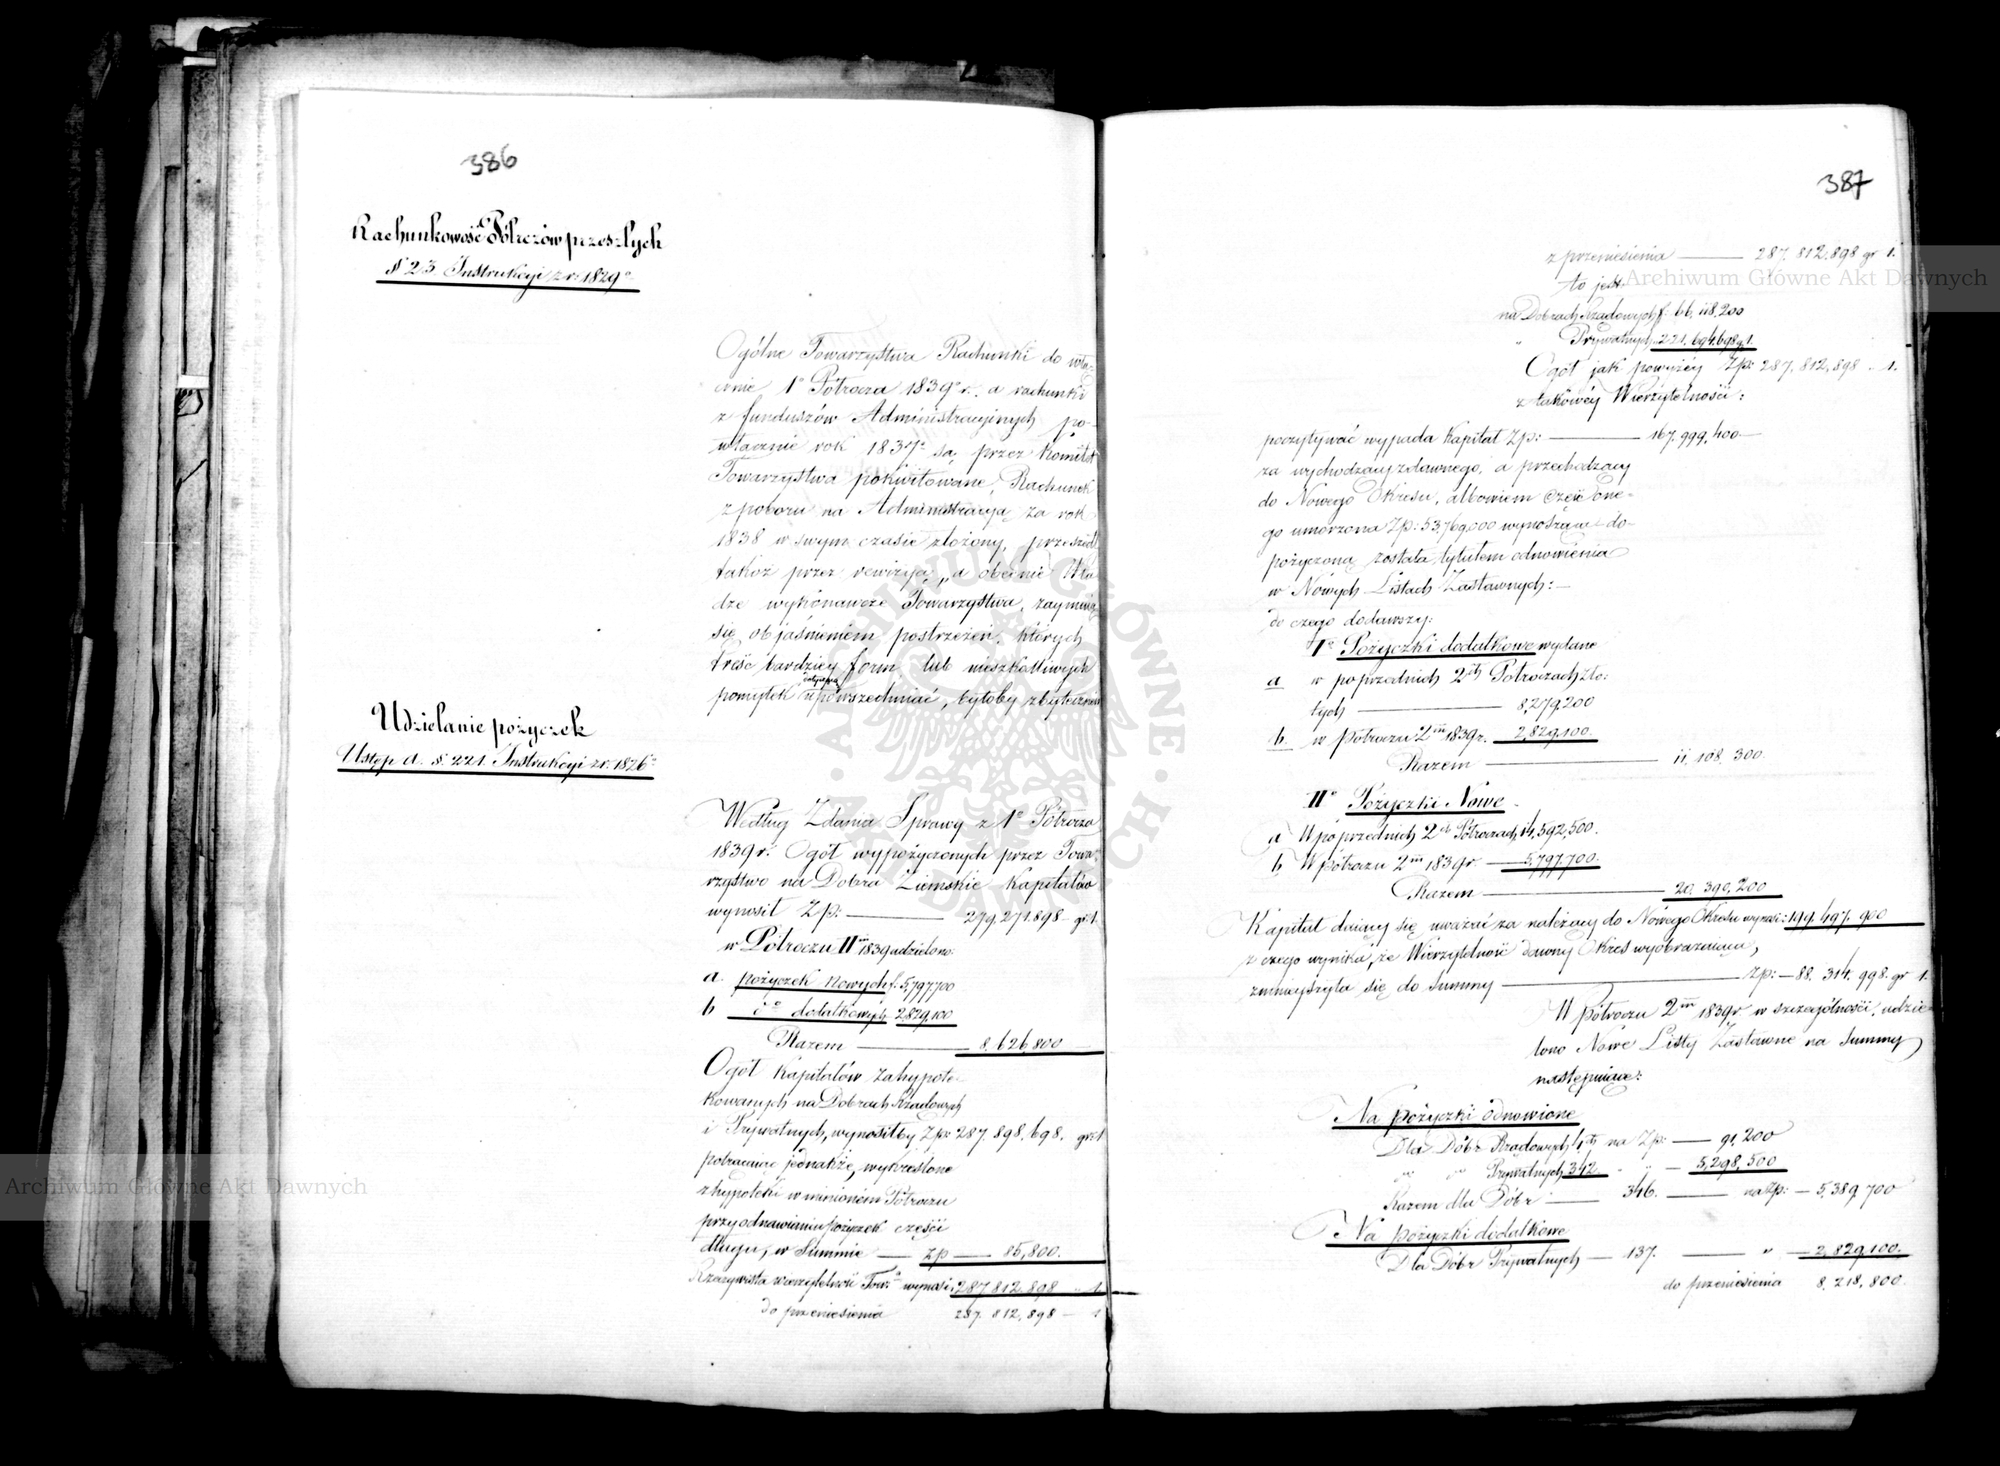 386
Rachunkowość Półroczów przeszłych
§ 23 Instrukcyi z r: 1829°
Ogólne Towarzystwa Rachunki do włą-
cznie 1° Półrocza 1839° r. a rachunki
z funduszów Administracyjnych po-
włącznie rok 1837° są, przez Komitet
Towarzystwa pokwitowane, Rachunek
z poboru na Administracyą za rok
1838 w swym czasie złożony, przeszedł
takoż przez rewizyą, a obecnie Wła-
dze wykonawcze Towarzystwa, zaymują
się objaśnieniem postrzeżeń, których
treść bardziey form, lub nieszkodliwych
pomyłek dotyczącą upowszechniać, byłoby zbytecznem
Udzielanie pożyczek
Ustęp d. § 221 Instrukcyi z r: 1826°
Według Zdania Sprawy z 1° Półrocza
1839 r: Ogół wypożyczonych przez Towa-
rzystwo na Dobra Ziemskie Kapitałów
wynosił Zp: — 279,271.898 — gr 1.
w Półroczu II° 1839 udzielono:
a. pożyczek nowych f. 5,797,700
b d° dodatkowych 2,829,100
Razem — 8,626,800
Ogół Kapitałów zahypote-
kowanych na Dobrach Rządowych
i Prywatnych, wynosiłby Zp: 287.898.698. gr: 1
potrącając jednakże, wykreślone
z hypoteki w minionem Półroczu
przy odnawianiu pożyczek części
długu, w Summie — zp — 85,800.
Rzeczywista wierzytelność Tow:a wynosi: 287.812,898 " 1.
do przeniesienia 287. 812,898 — 1
387
z przeniesienia — 287.812,898 gr 1.
to jest
na Dobrach Rządowych f: 66,118,200
" Prywatnych 221,694,698 g 1.
Ogół jak powyżey Zp: 287,812,898 . 1.
z takowéy Wierzytelności:
poczytywać wypada Kapitał Zp: — 167,999,400 —
za wychodzący z dawnego, a przechodzący
do Nowego Okresu, albowiem część one-
go umorzona Zp: 53,769,000 wynosząca do-
pożyczoną została tytułem odnowienia
w Nowych Listach Zastawnych: —
do czego dodawszy:
I° Pożyczki dodatkowe wydane
a w poprzednich 2ch Półroczach zło:
tych — 8,279,200
b. w Półroczu 2m 1839 r. 2,829,100.
Razem — 11,108,300
II° Pożyczki Nowe
a W poprzednich 2ch Półroczach 14,592,500.
b W półroczu 2m 1839 r. — 5,797,700.
Razem — 20,390,200
Kapitał dający się uważać za należący do Nowego Okresu wynosi: 199.497.900
z czego wynika, że Wierzytelność dawny Okres wyobrażająca,
zmnieyszyła się do Summy — zp: — 88.314.998. gr 1.
W półroczu 2m 1839 r w szczególności, udzie-
lono Nowe Listy Zastawne na Summy
następujące:
Na pożyczki odnowione
Dla Dóbr Rządowych 4ch na Zp: — 91,200
" " Prywatnych 342 " " — 5,298,500
Razem dla Dóbr — 346. — na Zp: — 5,389,700
Na pożyczki dodatkowe
Dla Dóbr Prywatnych — 137. — " — 2,829,100.
do przeniesienia 8,218,800.
Archiwum Główne Akt Dawnych
Archiwum Główne Akt Dawnych
ARCHIWUM GŁÓWNE AKT DAWNYCH